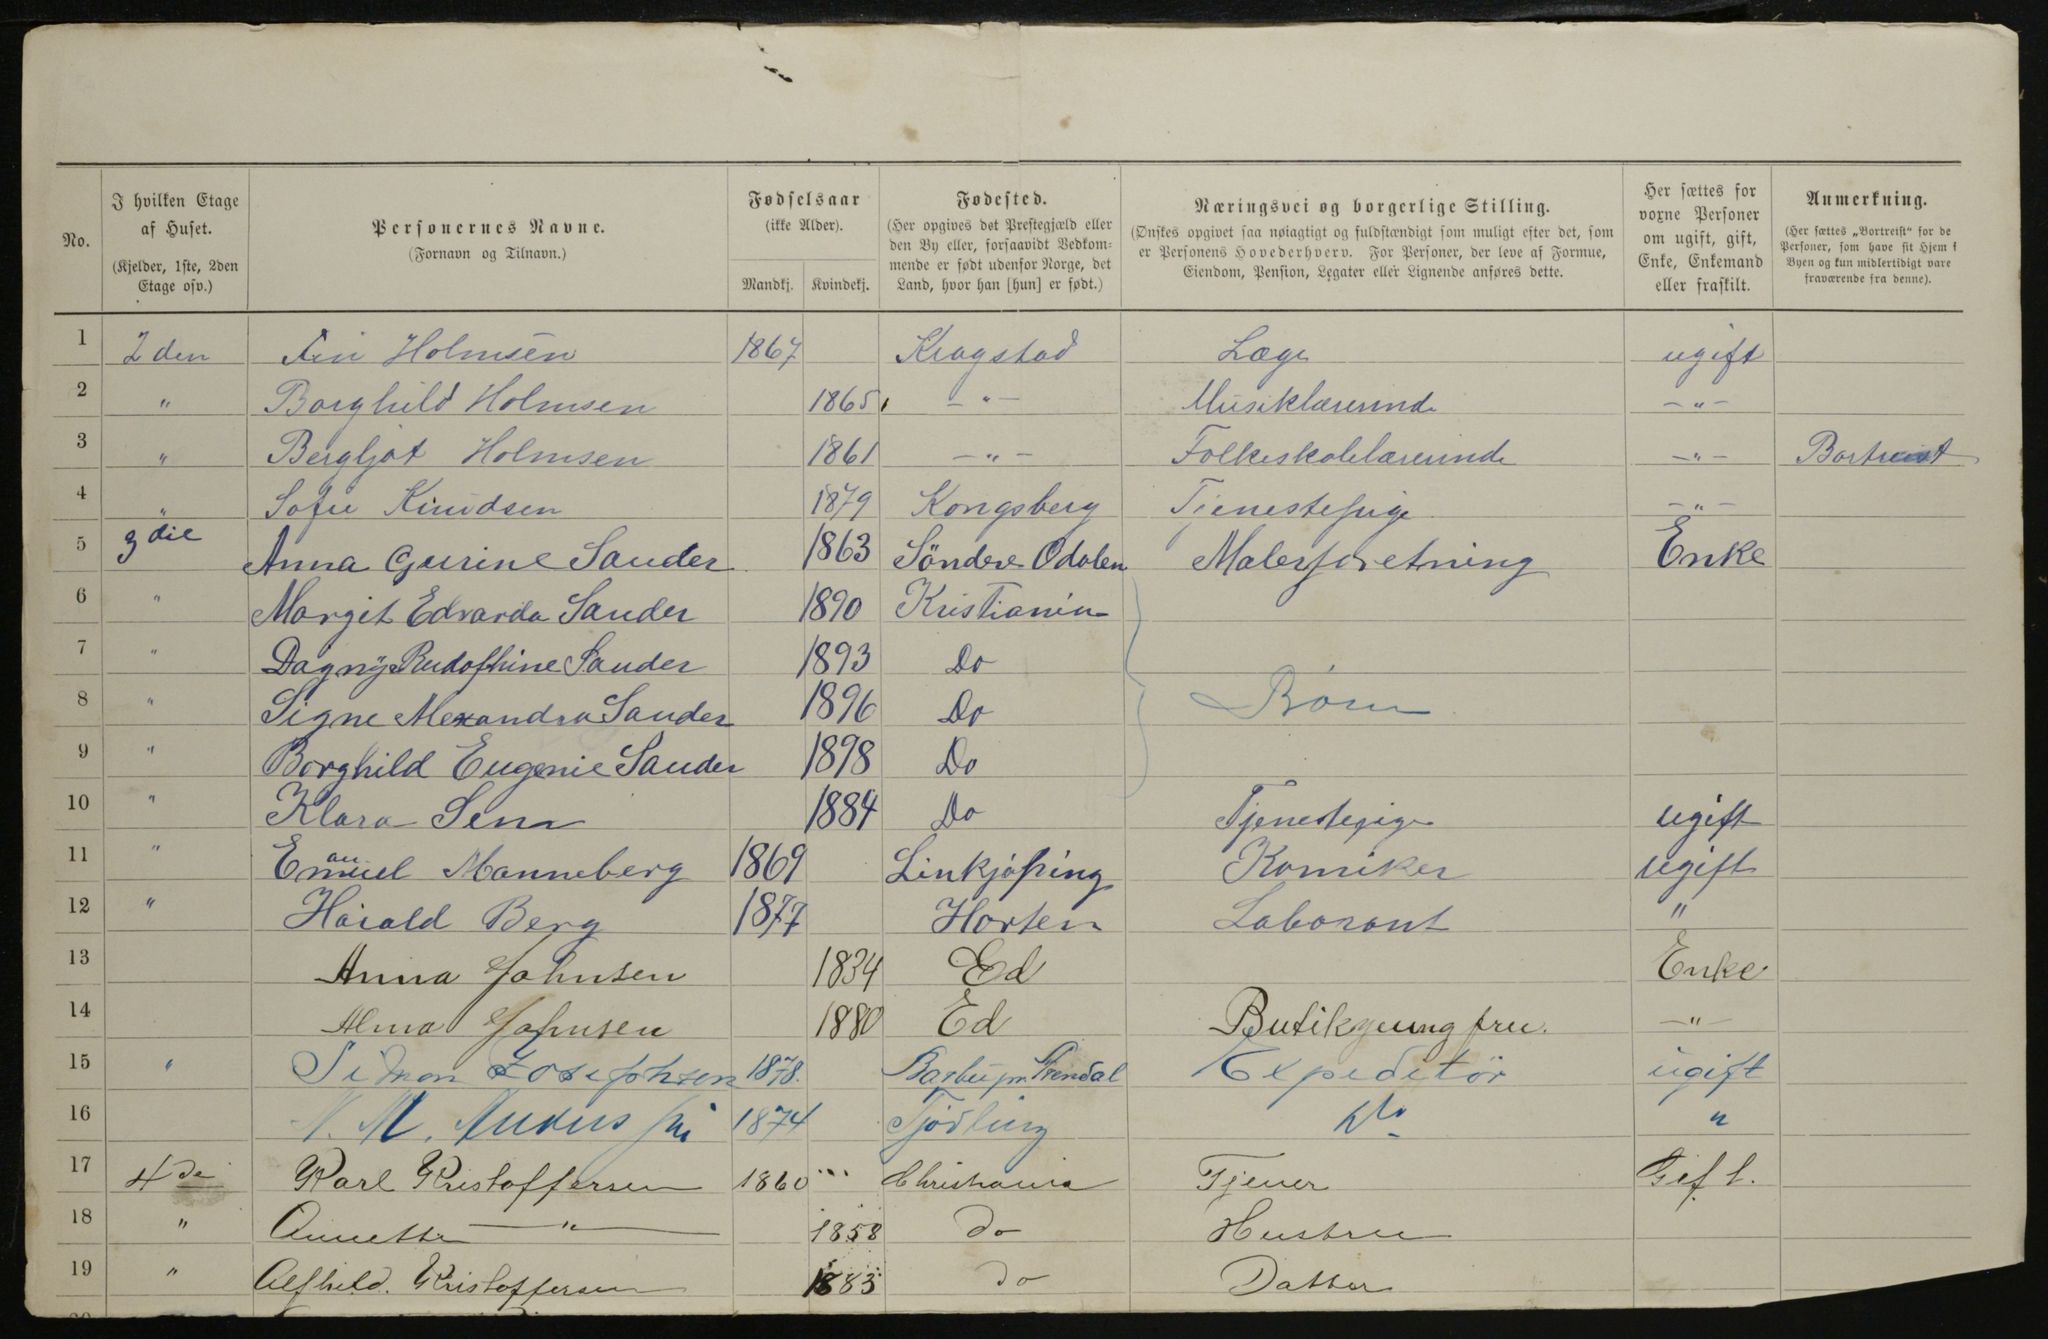 No. | I hvilken Etage af Huset. (Kjelder, 1ste, 2den Etage osv.) | Personernes Navne. (Fornavn og Tilnavn.) | Fødselsaar (ikke Alder). Mandkj. | Kvindekj. | Fødested. (Her opgives det Prestegjæld eller den By eller, forsaavidt Vedkommende er født udenfor Norge, det Land, hvor han [hun] er født.) | Næringsvei og borgerlige Stilling. (Ønskes opgivet saa nøiagtigt og fuldstændigt som muligt efter det, som er Personens Hovederhverv. For Personer, der leve af Formue, Eiendom, Pension, Legater eller Lignende anføres dette. | Her sættes for voxne Personer om ugift, gift, Enke, Enkemand eller fraskilt. | Anmerkning. (Her sættes „Bortreist“ for de Personer, som have sit Hjem i Byen og kun midlertidigt vare fraværende fra denne).
1 2den Holmsen 1867 Kragstad Læge ugift
2 " Borghild Holmsen 1865 -"- Musiklærerinde -"-
3 " Bergljot Holmsen 1861 -"- Folkeskolelærerinde -"- Bortreist
4 " Sofie Knudsen 1879 Kongsberg Tjenestepige -"-
5 3die Anna Gurine Sander 1863 Søndre Odalen Malerforetning Enke
6 " Margit Edvarda Sander 1890 Kristiania
7 " Dagny Rudolphine Sander 1893 Do
8 " Signe Alexandra Sander 1896 Do Børn
9 " Borghild Eugenie Sander 1898 Do
10 " Klara 1884 Do Tjenestepige ugift
11 " Emanuel Manneberg 1869 Linkjøping Komiker ugift
12 " Harald Berg 1877 Horten Laborant "
13 Anna Johnsen 1834 Ed Enke
14 Alma Johnsen 1880 Ed Butikjumgfru. -"-
15 " Simon Josephsen 1878. Barbu pr Arendal Expeditør ugift
16 1874 Tjødling Do "
17 4de Karl Kristoffersen 1860 Christiania Tjener Gift.
18 " Annette -"- 1858 do Hustru
19 " Alfhild. Kristoffersen 1883 do Datter